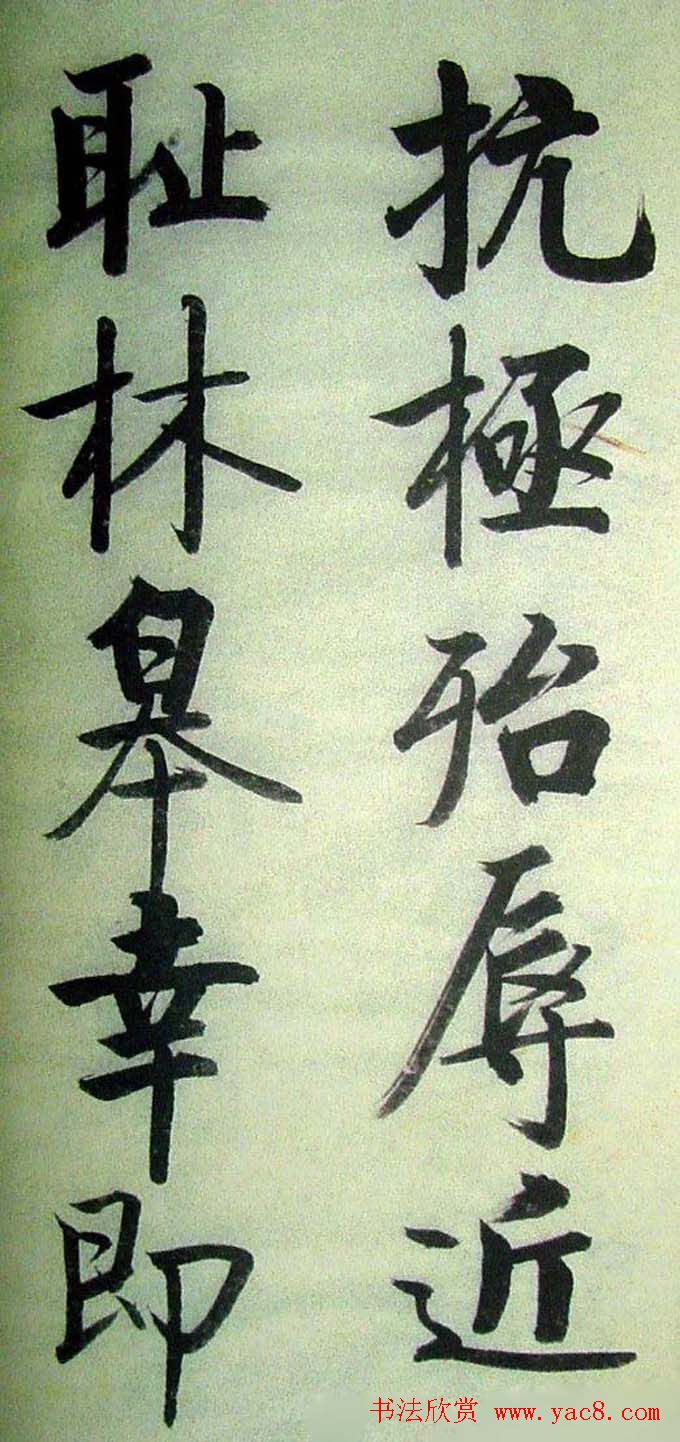 抗極殆辱近
耻林皋幸即
书法欣赏 www.yac8.com